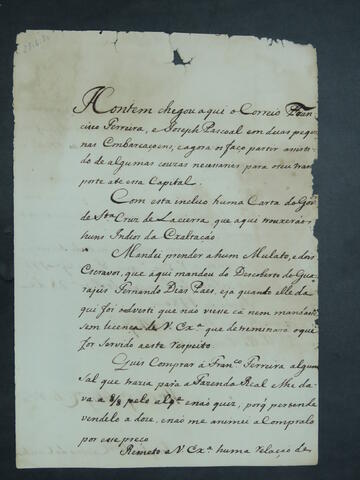 Hontem chegou aqui o Correio Fran
cisco Ferreira, e Joseph Pascoal em duas peque
nas Embarcaçoens, e agora o faço partir assisti
do de algumas couzas necessarias para o seu trans
porte até essa Capital.
Com esta incluo huma Carta do Gov.
de Sta Cruz de Lacerra que aqui trouxerão
huns Indios da Exaltação
Mandei prender a hum Mulato, e dous
Escravos, que aqui mandou do Descoberto de Gua
rajús Fernando Dias Paes, e ja quando elle da
qui foi o adverti que não viese cá nem mandasse
sem licença de V. Exª. que determinará o que
for servido a este respeito.
Quis Comprar á Franco Ferreira algum
Sal que trazia para a Fazenda Real lhe da
va a 8/8 pelo alqe. e não quiz, porq̃ pertende
vendelo a doze, e não me animei a Compralo
por esse preço
Remeto a V. Exª. huma relação da